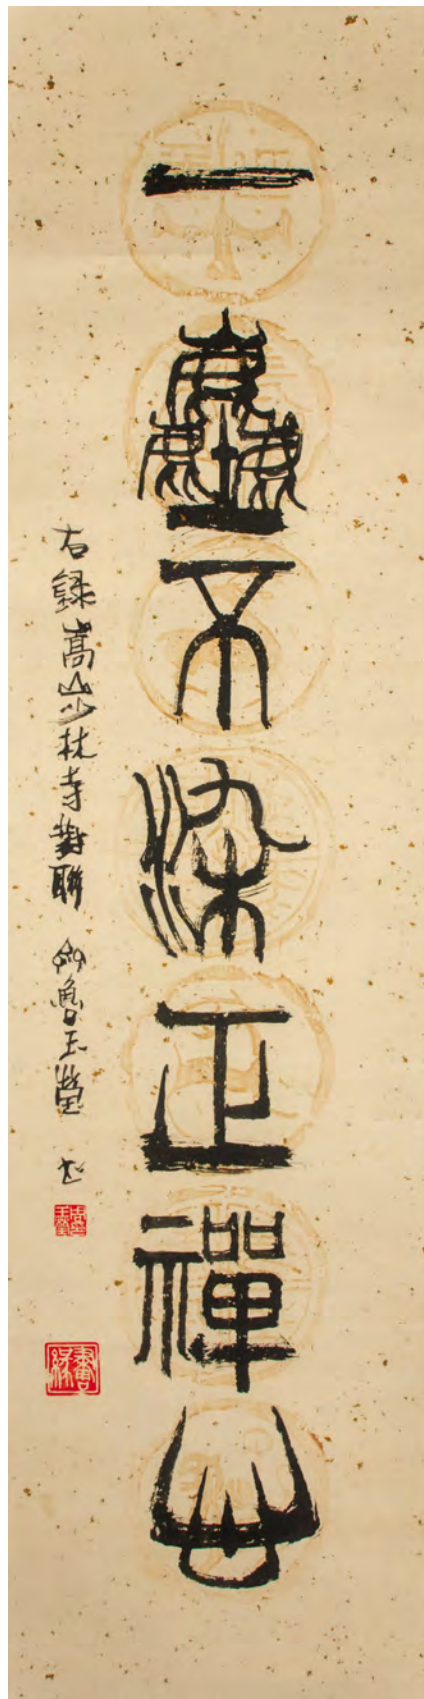 一塵不染正禪心
右錄嵩山少林寺對聯 魯玉瑩